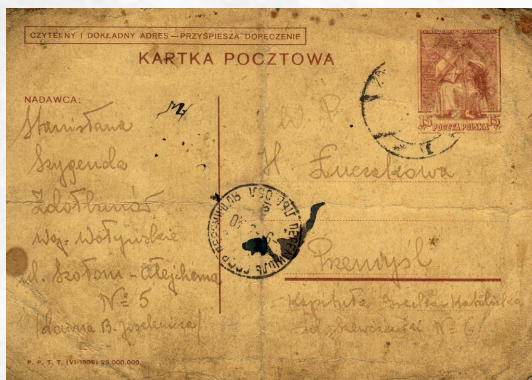 CZYTELNY I DOKŁADNY ADRES — PRZYŚPIESZA DORĘCZENIE
KARTKA POCZTOWA
15 POCZTA POLSKA 15
NADAWCA:
Stanisława
Szygenda
Zdołbunów
woj. Wołyńskie
ul. Szołom-Alejchema
№ 5
/dawna B. /
W. P.
H. Łuczakowa
Przemyśl
Kapituła Grecko Katolicka
№
P. P. T. T. (VI-1938) 25.000.000.